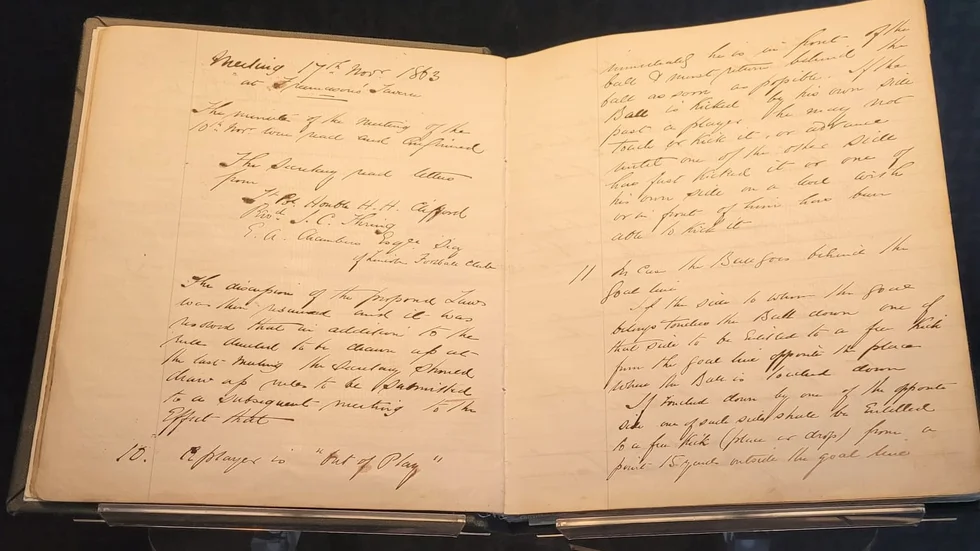 Meeting 17th Novr 1863
at Freemasons Tavern
The minutes of the meeting of the
10th Novr were read and confirmed
The Secretary read letters
from
Honble H. H. Clifford
Revd J. C. Thring
E. A. Chambers Esqre Secy
of Lincoln Football Club
The discussion of the proposed Laws
was then resumed and it was
resolved that in addition to the
rules directed to be drawn up at
the last Meeting the Secretary should
draw up rules to be submitted
to a subsequent meeting to the
Effect that
10. A player is "Out of Play"
immediately he is in front of the
ball & must return behind the
ball as soon as possible. If the
Ball is kicked by his own side
past a player he may not
touch or kick it, or advance
until one of the other side
has first kicked it or one of
his own side on a level with
or in front of him has been
able to kick it
11 In Case the Ball goes behind the
Goal line
If the side to whom the goal
belongs touches the Ball down one of
that side to be Entitled to a free Kick
from the goal line opposite the place
where the Ball is touched down
If touched down by one of the opposite
side one of such side shall be Entitled
to a free kick (place or drop) from a
point 15 yards outside the goal line